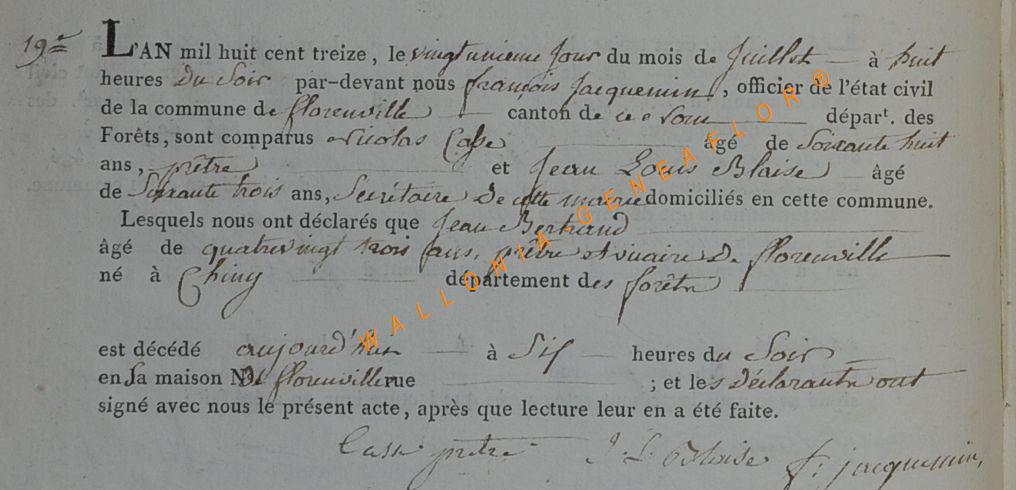 19e
L'AN mil huit cent treize, le vingt unieme jour du mois de juillet à huit
heures du Soir par-devant nous françois Jacquemin, officier de l'état civil
de la commune de florenville canton de ce nom départ. des
Forêts, sont comparus Nicolas Casse âgé de Soixante huit
ans, prêtre et Jean Louis Blaise âgé
de Soixante trois ans, Secrétaire De cette mairie domiciliés en cette commune.
Lesquels nous ont déclarés que Jean Bertrand
âgé de quatrevingt trois ans, prêtre et vicaire De florenville
né à Chiny département des forêts
est décédé aujourd'hui à Six heures du Soir
en Sa maison De florenville rue ; et les déclarants ont
signé avec nous le présent acte, après que lecture leur en a été faite.
Casse prêtre J. L. Blaise f: jacquemin,
WALLONIA GENEAFLOR®